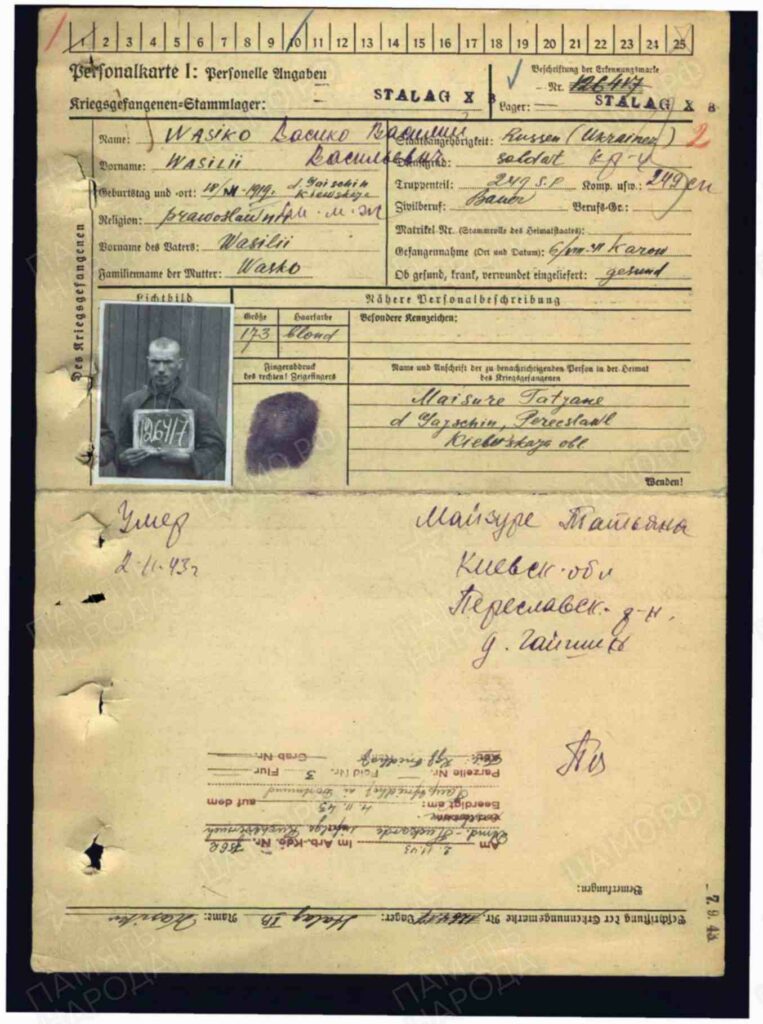 1 2 3 4 5 6 7 8 9 10 11 12 13 14 15 16 17 18 19 20 21 22 23 24 25
Personalkarte I: Personelle Angaben
Beschriftung der Erkennungsmarke
Nr. 126417
Kriegsgefangenen-Stammlager: STALAG X B
Lager: STALAG X B
Des Kriegsgefangenen
Name: WASIKO Васико Василий
Васильевич
Vorname: WASILII
Geburtstag und -ort: d Gaischin
Kiewskaja
Religion: prawoslawn
Vorname des Vaters: Wasilii
Familienname der Mutter: Wasko
Staatsangehörigkeit: Russen (Ukrainer) 2
Dienstgrad: soldat
Truppenteil: 249 S.P Komp. usw.: 249
Zivilberuf: Bauer Berufs-Gr.:
Matrikel Nr. (Stammrolle des Heimatstaates):
Gefangennahme (Ort und Datum): Karow
Ob gesund, krank, verwundet eingeliefert: gesund
Lichtbild
Nähere Personalbeschreibung
Größe Haarfarbe Besondere Kennzeichen:
173 blond
Fingerabdruck
des rechten! Zeigefingers
Name und Anschrift der zu benachrichtigenden Person in der Heimat
des Kriegsgefangenen
126417
Maisure Tatjane
d Gajschin, Pereeslawl
Kiewskaja obl
Wenden!
Умер
2.11.43г
Майзуре Татьяна
Киевск. обл
Переславск. р-н.
д. Гайшин
Bemerkungen:
Am 2.11.43 Im Arb.-Kdo. Nr.
Beerdigt am: 4.11.43 auf dem
Hauptfriedhof in Dortmund
Parzelle Nr. Feld Nr. 3 Flur
Grab Nr.
Beschriftung der Erkennungsmarke Nr. Lager: Stalag Name: Wasiko
7.9.43
ПАМЯТЬ НАРОДА
ЦАМО.РФ